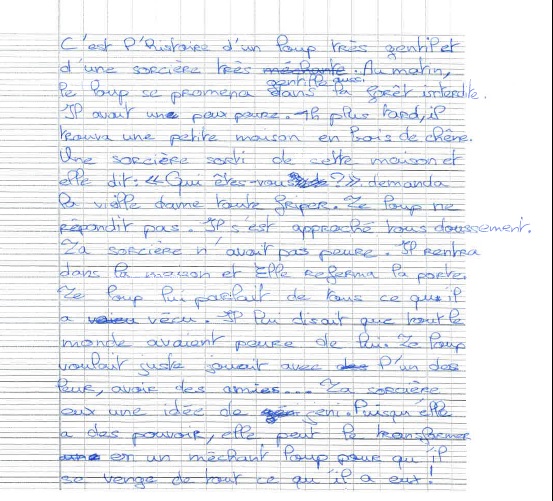 C'est l'histoire d'un loup très gentil et
d'une sorcière très méchante gentille aussi. Au matin,
le loup se promena dans la forêt interdite.
Il avait une peux peure. 1h plus tard, il
trouva une petite maison en bois de chêne.
Une sorcière sorti de cette maison et
elle dit: « Qui êtes-vous ? ». demanda
la vielle dame toute friper. Le loup ne
répondit pas. Il s'est approché tous doussement.
La sorcière n'avait pas peure. Il rentra
dans la maison et Elle referma la porte.
Le loup lui parlait de tous ce qu'il
a vécu. Il lui disait que tout le
monde avaient peure de lui. Le loup
voulait juste jouait avec l'un des
leur, avoir des amies... La sorcière
eux une idée de géni. Puisqu'elle
a des pouvoir, elle peut le transformer
en un méchant loup pour qu'il
se venge de tout ce qu'il a eux!